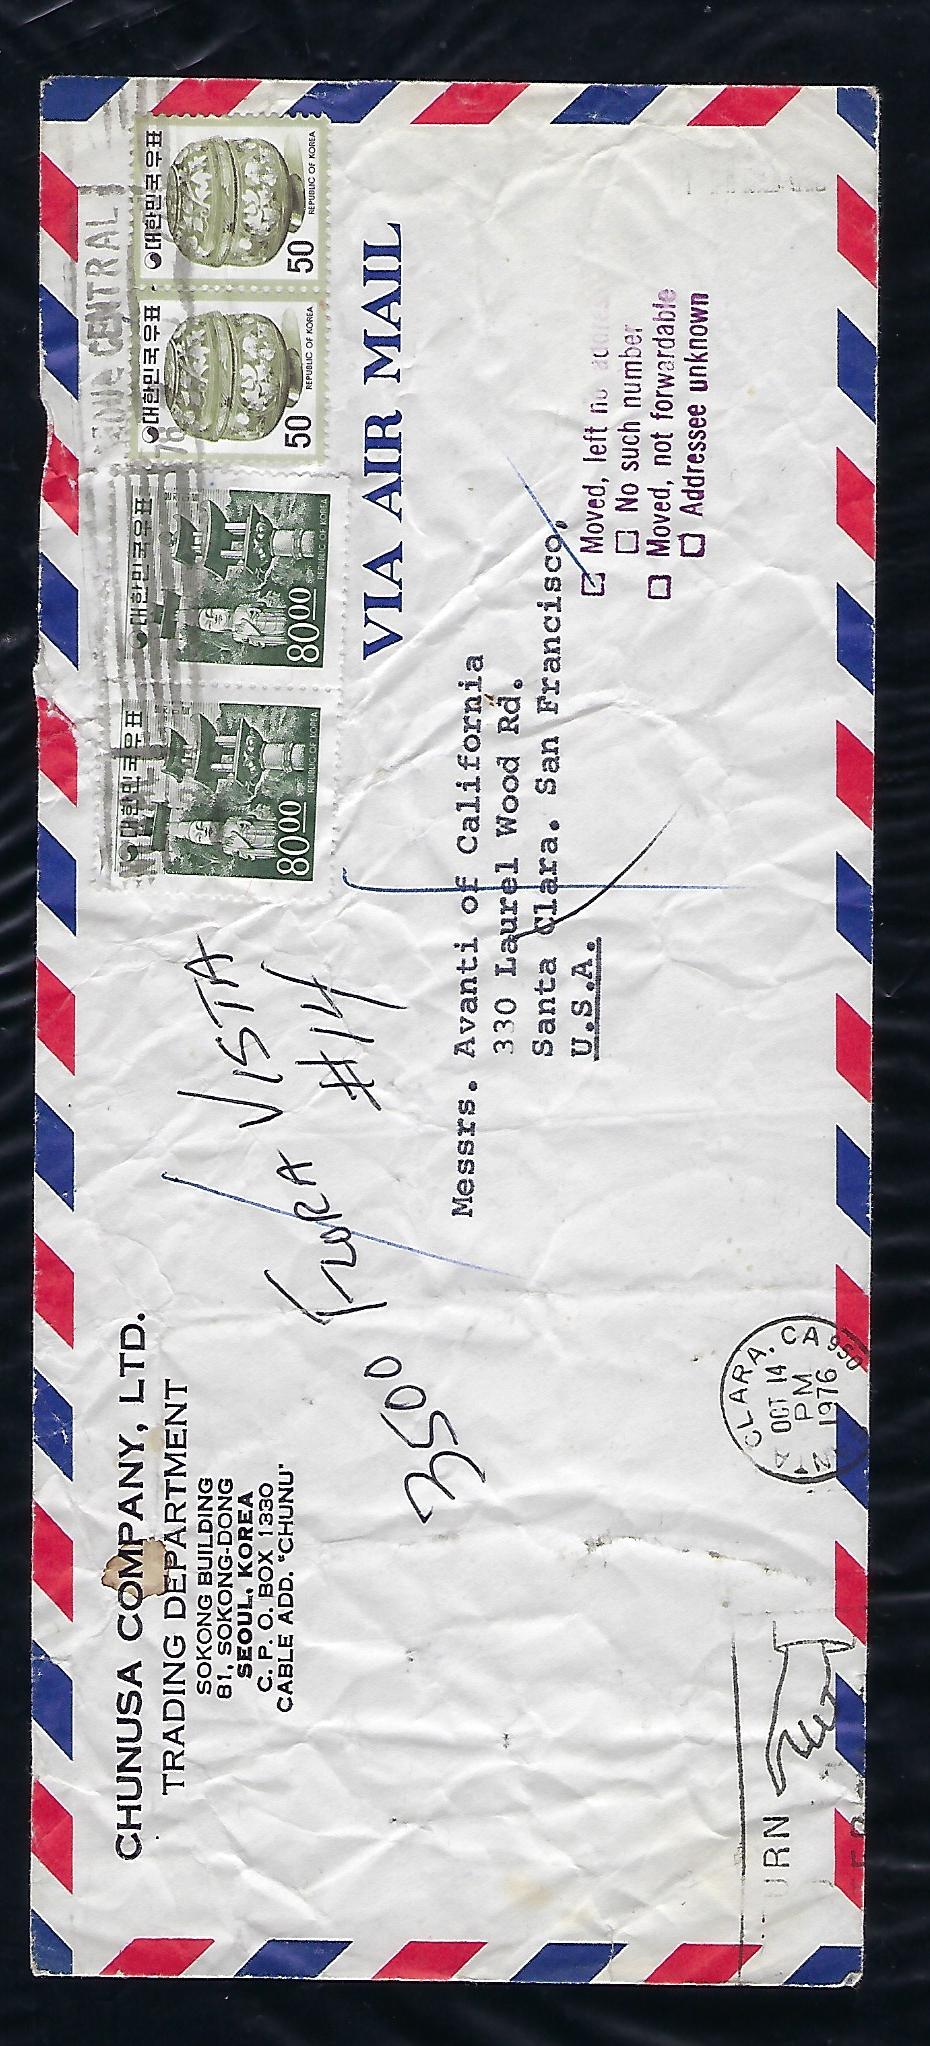 CHUNUSA COMPANY, LTD.
TRADING DEPARTMENT
SOKONG BUILDING
81, SOKONG-DONG
SEOUL, KOREA
C. P. O. BOX 1330
CABLE ADD. "CHUNU"
대한민국우표
80.00
REPUBLIC OF KOREA
대한민국우표
80.00
REPUBLIC OF KOREA
대한민국우표
50
REPUBLIC OF KOREA
대한민국우표
50
REPUBLIC OF KOREA
CENTRAL
VIA AIR MAIL
3500 FLORA VISTA
#14
Messrs. Avanti of California
330 Laurel Wood Rd.
Santa Clara. San Francisco,
U.S.A.
Moved, left no
No such number
Moved, not forwardable
Addressee unknown
CLARA, CA 950
OCT 14
PM
1976